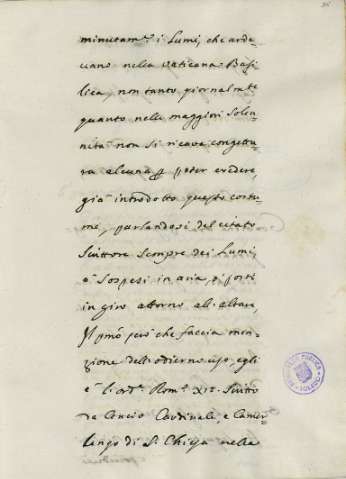 minutam.te i Lumi, che arde-
vano nella Vaticana Basi-
lica, non tanto giornalm.te
quanto nelle maggiori Solen-
nità non si ricava congettu-
ra alcuna p poter credere,
già introdotto questo costu-
me, parlandosi del citato
Scittore sempre dei Lumi,
ò sospesi in aria, ò posti
in giro attorno all' altare,
Il pmo però che faccia men-
zione dell' odierno uso, egli
è l' ord.e Rom.o XIV. Scritto
da Cencio Cardinale, e Camer-
lengo di S. Chiesa nella